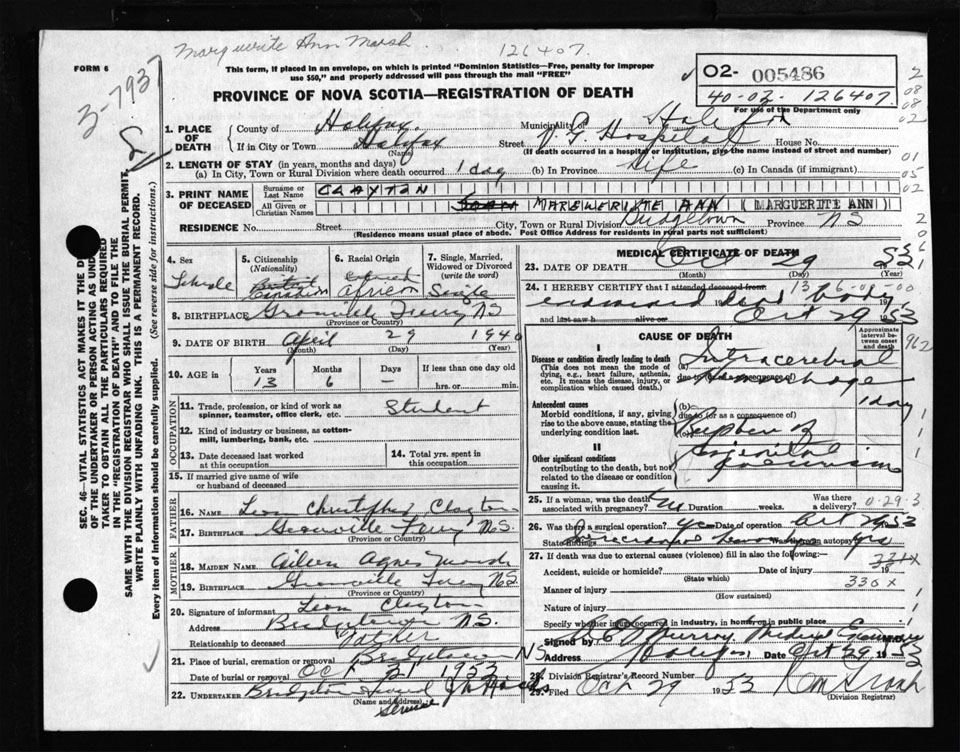 Marguerite Ann Marsh. 126407.
FORM 6
This form, if placed in an envelope, on which is printed "Dominion Statistics—Free, penalty for improper
use $50," and properly addressed will pass through the mail "FREE"
02- 005486
40-02-126407.
For use of the Department only
PROVINCE OF NOVA SCOTIA—REGISTRATION OF DEATH
3-7937
1. PLACE OF DEATH
County of Halifax Municipality of Halifax
If in City or Town Halifax Street V. G. Hospital House No.
(Name) (If death occurred in a hospital or institution, give the name instead of street and number)
2. LENGTH OF STAY (in years, months and days)
(a) In City, Town or Rural Division where death occurred 1 day (b) In Province Life (c) In Canada (if immigrant)
3. PRINT NAME OF DECEASED
Surname or Last Name CLAYTON
All Given or Christian Names MARGWERITTE ANN (MARGUERITE ANN)
RESIDENCE No. Street City, Town or Rural Division Bridgetown Province NS
(Residence means usual place of abode. Post Office Address for residents in rural parts not sufficient)
4. Sex
Female
5. Citizenship
(Nationality)
British
Canadian
6. Racial Origin
African
7. Single, Married, Widowed or Divorced
(write the word)
Single
8. BIRTHPLACE Granville Ferry NS
(Province or Country)
9. DATE OF BIRTH April 29 1940
(Month) (Day) (Year)
10. AGE in
Years Months Days If less than one day old
13 6 — hrs. or min.
OCCUPATION
11. Trade, profession, or kind of work as
spinner, teamster, office clerk, etc. Student
12. Kind of industry or business, as cotton-
mill, lumbering, bank, etc.
13. Date deceased last worked
at this occupation
14. Total yrs. spent in
this occupation
15. If married give name of wife
or husband of deceased
FATHER
16. NAME Leon Christopher Clayton
17. BIRTHPLACE Granville Ferry N.S.
(Province or Country)
MOTHER
18. MAIDEN NAME Aileen Agnes Marsh
19. BIRTHPLACE Granville Ferry NS
(Province or Country)
20. Signature of informant Leon Clayton
Address Bridgetown N.S.
Relationship to deceased Father
21. Place of burial, cremation or removal Bridgetown NS
Date of burial or removal Oct 31 1953
22. UNDERTAKER Bridgetown
(Name and Address)
Service
MEDICAL CERTIFICATE OF DEATH
23. DATE OF DEATH Oct 29 53
(Month) (Day) (Year)
24. I HEREBY CERTIFY that I attended deceased from:
examined dead body
and last saw h alive on Oct 29 53
CAUSE OF DEATH
Approximate interval between onset and death
I
Disease or condition directly leading to death
(This does not mean the mode of
dying, e.g., heart failure, asthenia,
etc. It means the disease, injury, or
complication which caused death.)
(a) Intracerebral
due to (or as a consequence of)
Hemorrhage
1 day
Antecedent causes
Morbid conditions, if any, giving
rise to the above cause, stating the
underlying condition last.
(b)
due to (or as a consequence of)
(c) Rupture of
II
Other significant conditions
contributing to the death, but not
related to the disease or condition
causing it.
25. If a woman, was the death
associated with pregnancy? Duration weeks. Was there a delivery?
26. Was there a surgical operation? yes Date of operation Oct 29 53
State findings Was there an autopsy? yes
27. If death was due to external causes (violence) fill in also the following:—
Accident, suicide or homicide? Date of injury 19
(State which)
330x
Manner of injury
(How sustained)
Nature of injury
Specify whether injury occurred in industry, in home, or in public place
Signed by Murray Medical Examiner
Address Halifax Date Oct 29 1953
28. Division Registrar's Record Number
29. Filed Oct 29 1953
(Division Registrar)
SEC. 46—VITAL STATISTICS ACT MAKES IT THE
OF THE UNDERTAKER OR PERSON ACTING AS UNDER
TAKER TO OBTAIN ALL THE PARTICULARS REQUIRED
IN THE "REGISTRATION OF DEATH" AND TO FILE THE
SAME WITH THE DIVISION REGISTRAR WHO SHALL ISSUE THE BURIAL PERMIT.
WRITE PLAINLY WITH UNFADING INK. THIS IS A PERMANENT RECORD.
Every item of information should be carefully supplied. (See reverse side for instructions.)